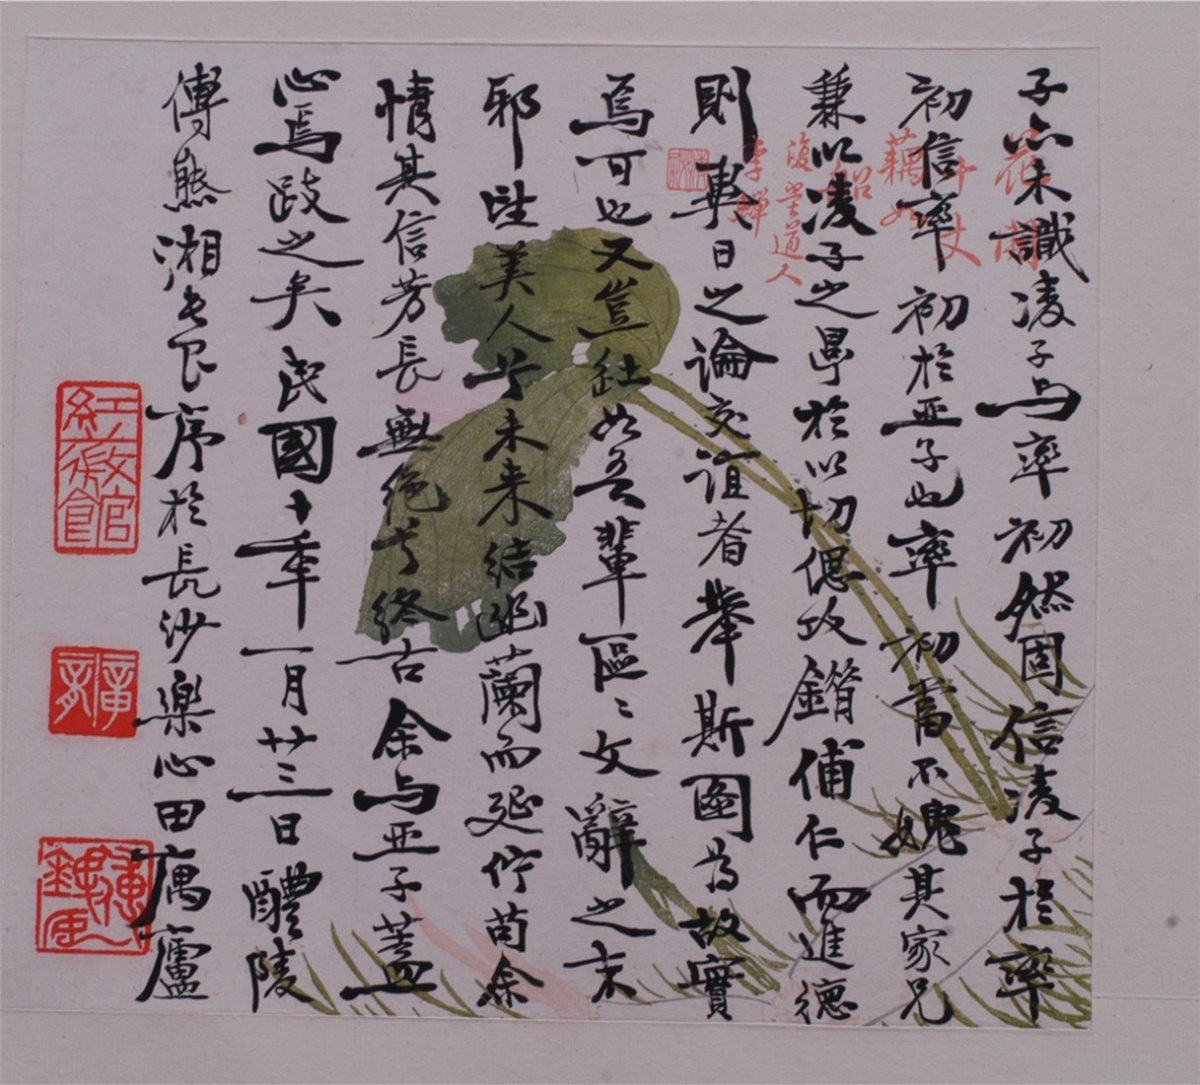 子亦未識凌子与率初然固信凌子於率
初信率初於亚子也率初不愧其家兄
兼以凌子之學於以切偲攻錯俌仁而進德
則異日之論交誼者舉斯圖為故實
焉可也又豈祇如吾輩區〻文辭之末
邪望美人兮未来結幽蘭而延佇苟余
情其信芳長無絶兮終古余与亚子蓋
心焉跂之矣民國十年一月廿三日醴陵
傅熊湘屯艮序於長沙樂心田庽廬
花開
十丈
藕如
船
復堂道人
李鱓
紅薇館